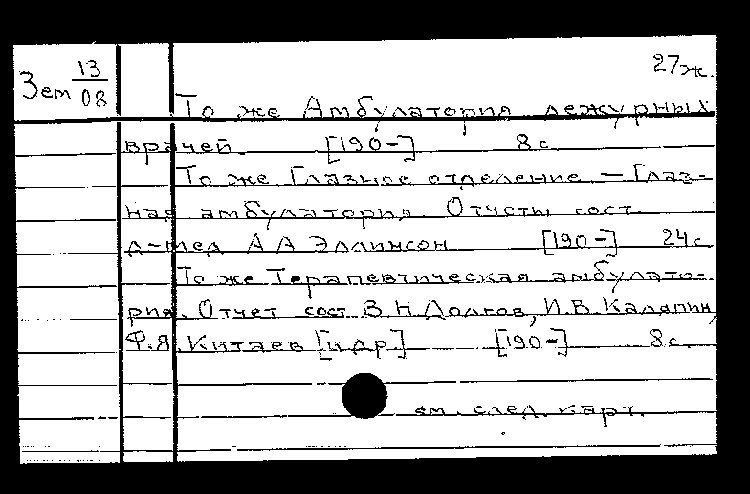 27ж.
Зем 13/08
То же Амбулатория дежурных
врачей. [190-] 8 с
То же Глазное отделение – Глаз-
ная амбулатория. Отчеты сост
д-мед А А Эллинсон [190-] 24 с
То же Терапевтическая амбулато-
рия. Отчет сост В.Н.Долгов, И.В.Каляпин,
Ф.Я.Китаев [и др.] [190-] 8 с.
см. след. карт.